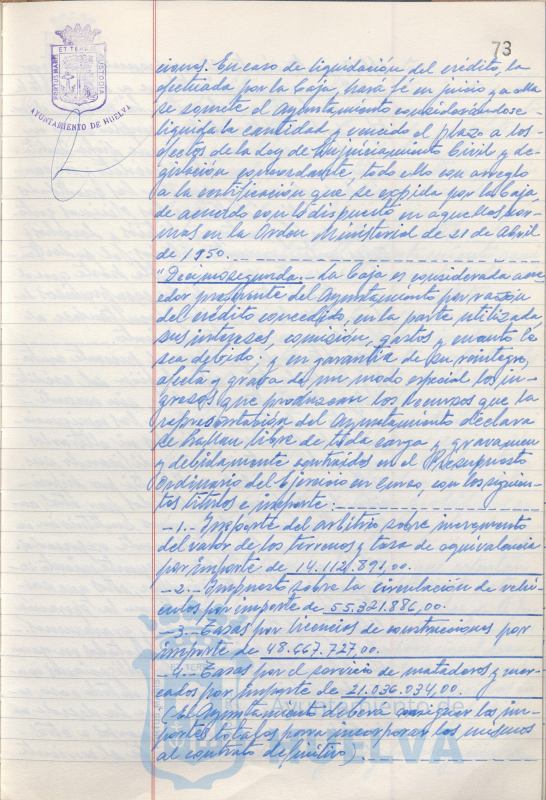 73
ET TERRE
PORTUS MARIS
CUSTODIA
AYUNTAMIENTO DE HUELVA
ciones. En caso de liquidación del crédito, la
efectuada por la Caja, hará fe en juicio y a ella
se somete el Ayuntamiento considerándose
líquida la cantidad y vencido el plazo a los
efectos de la Ley de Enjuiciamiento Civil y le-
gislación concordante, todo ello con arreglo
a la certificación que se expida por la Caja,
de acuerdo con lo dispuesto en aquellas nor-
mas en la Orden Ministerial de 21 de Abril
de 1950.
"Decimosegunda.- La Caja es considerada acre-
edor preferente del Ayuntamiento por razón
del crédito concedido, en la parte utilizada,
sus intereses, comisión, gastos y cuanto le
sea debido; y en garantía de su reintegro,
afecta y grava de un modo especial los in-
gresos que produzcan los recursos que la
representación del Ayuntamiento declara
se hallan libre de toda carga y gravamen
y debidamente contraídos en el Presupuesto
Ordinario del Ejercicio en curso, con los siguien-
tes títulos e importe:
-1.- Importe del arbitrio sobre incremento
del valor de los terrenos y tasa de equivalencia
por importe de 14.112.891,00.
-2.- Impuesto sobre la circulación de vehí-
culos por importe de 55.321.886,00.
-3.- Tasas por licencias de construcciones por
importe de 48.667.727,00.
-4.- Tasas por el servicio de mataderos y mer-
cados por importe de 21.036.034,00.
(El Ayuntamiento deberá consignar los im-
portes totales para incorporar los mismos
al contrato definitivo).
Ayuntamiento de
HUELVA